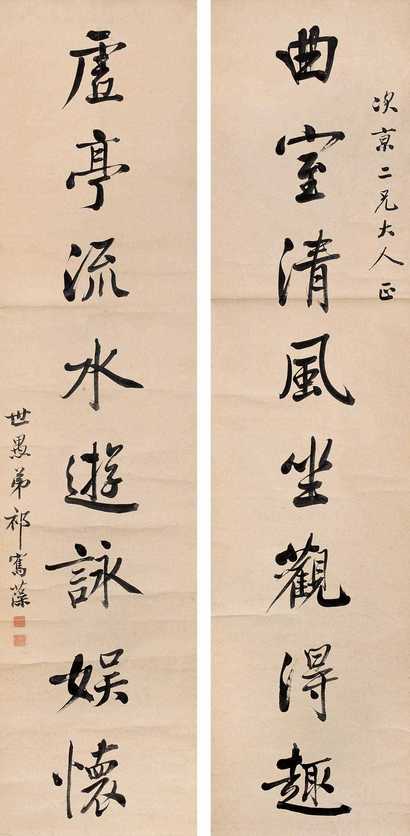 次京二兄大人正
曲室清風坐觀得趣
虛亭流水遊詠娱懷
世愚弟祁寯藻